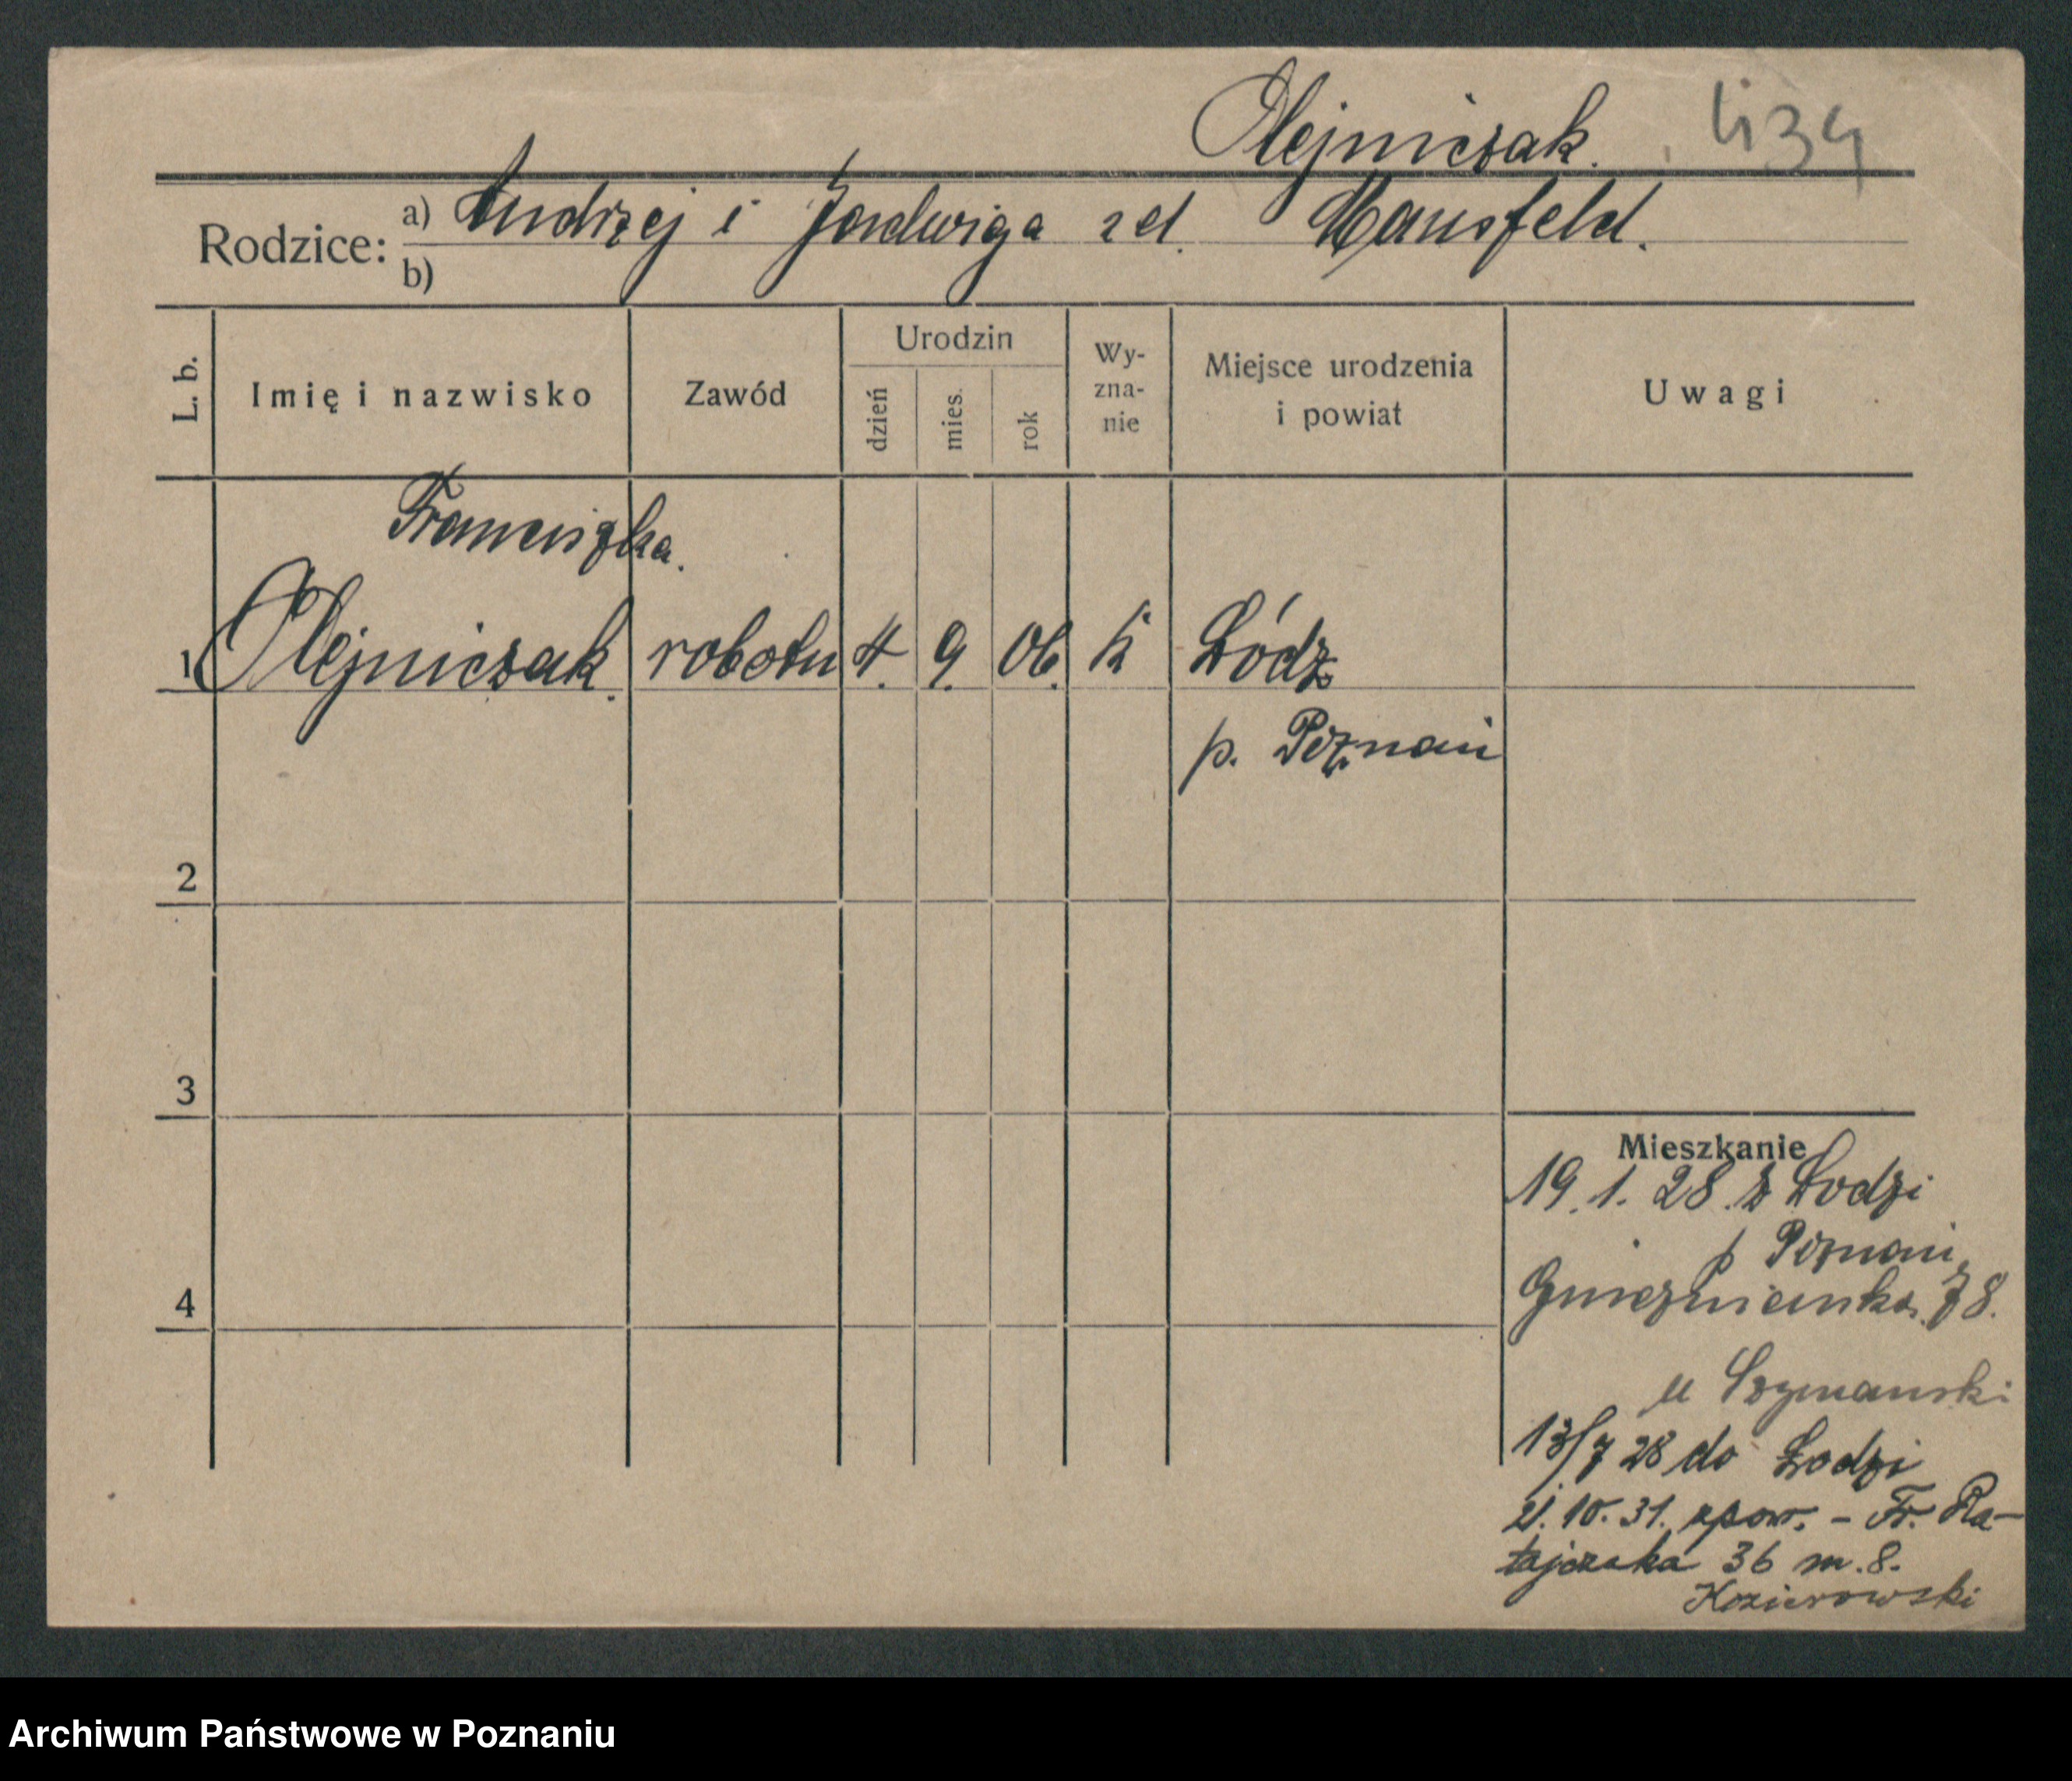 Olejniczak. 439
Rodzice: a) Andrzej i Jadwiga zd. Mansfeld.
b)
L. b. Imię i nazwisko Zawód Urodzin dzień mies. rok Wy-zna-nie Miejsce urodzenia i powiat Uwagi
Franciszka.
1 Olejniczak. robotn 4. 9. 06. k Łódz
p. Poznań
2
3
4
Mieszkanie
19. 1. 28. z Łodzi
p Poznań
Gnieźnieńska 78.
u Szymanski
13/7 28 do Łodzi
21. 10. 31. spow. – Fr. Ra-
tajczaka 36 m. 8.
Kozierowski
Archiwum Państwowe w Poznaniu